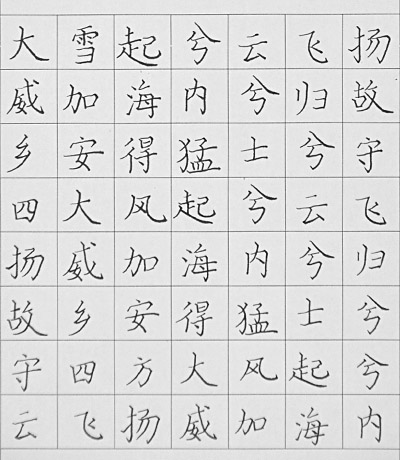 大雪起兮云飞扬
威加海内兮归故
乡安得猛士兮守
四大风起兮云飞
扬威加海内兮归
故乡安得猛士兮
守四方大风起兮
云飞扬威加海内